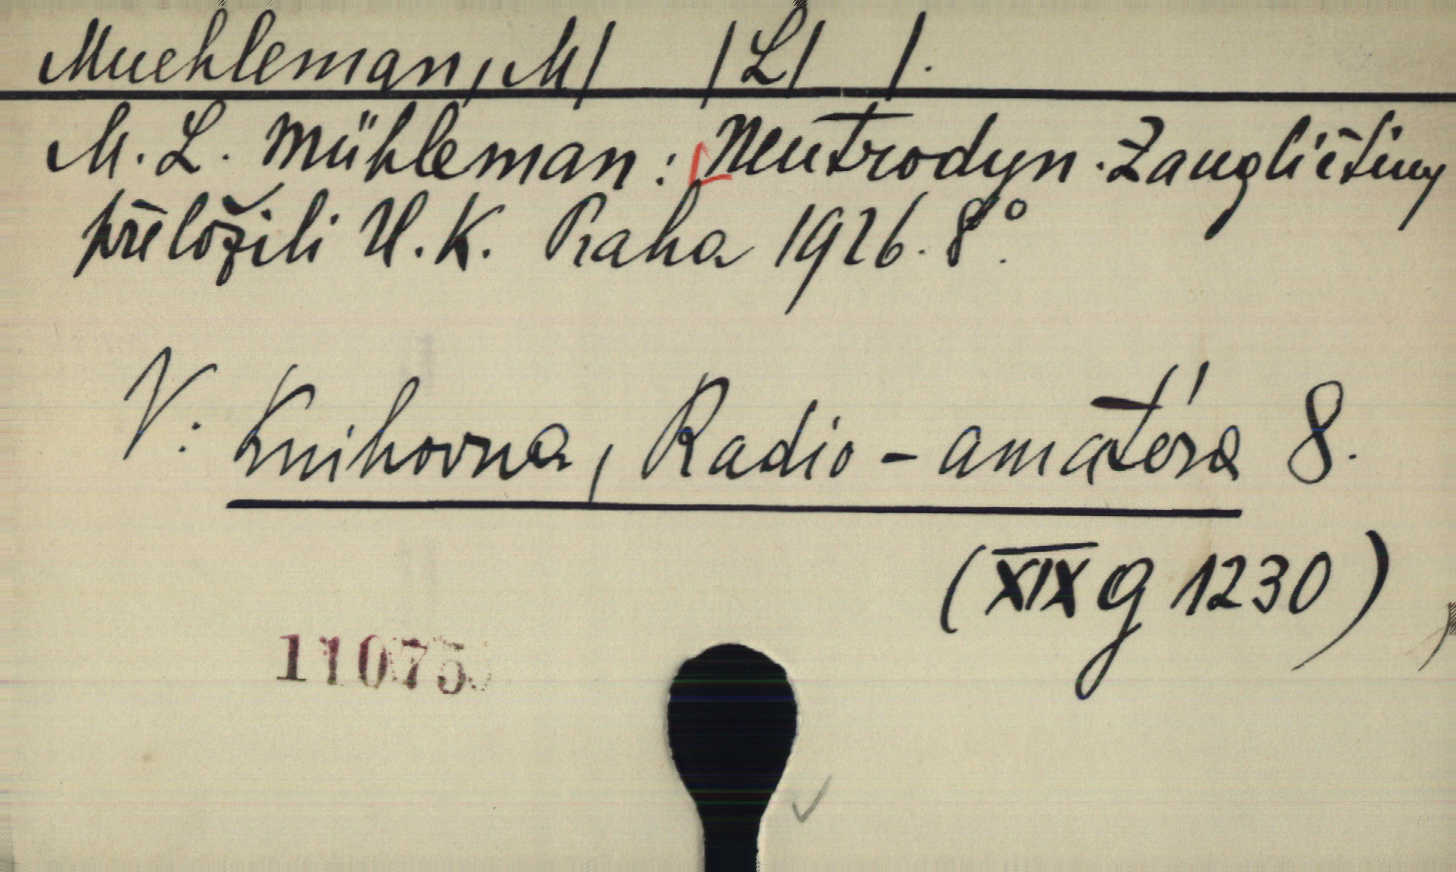 Muehleman, M/ /L/ /.
M. L. Mühleman: Neutrodyn. Z angličtiny
přeložili H. K. Praha 1926. 8°.
V: Knihovna, Radio-amatéra 8.
(XIX g 1230)
11075